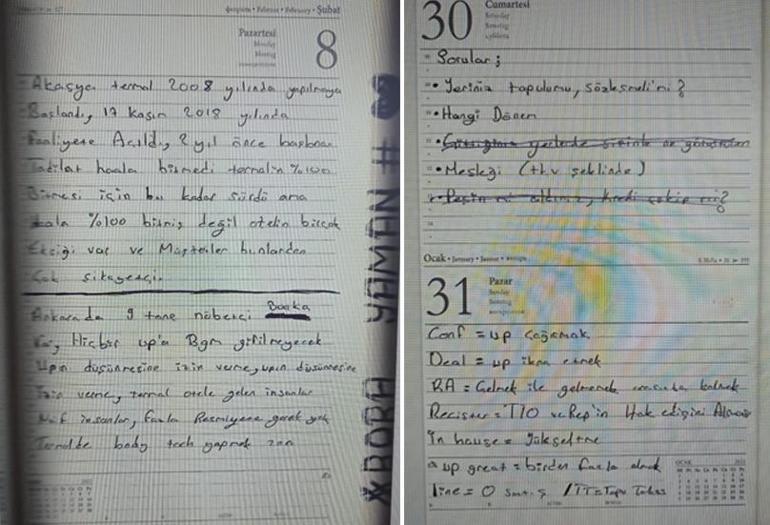 Şubat
Pazartesi
Monday
8
Akasya termal 2008 yılında yapılmaya
Başlandı, 17 Kasın 2018 yılında
Faaliyete Açıldı, 2 yıl önce başlanan
Tadilat haala bitmedi termalin %100
Bitmesi için bu kadar sürdü ama
hala %100 bitmiş değil otelin birçok
Eksiği var ve Müşteriler bunlardan
Çok şikayetçi.
Ankarada 9 tane nöbetçi Banka
Var, Hiçbir up'a Bgm girilmeyecek
Upın düşünmesine izin verme, upın düşünmesine
İzin verme, termal otele gelen insanlar
insanlar, fazla Resmiyete gerek yok
Termalde body tech yapmak
YAMAN #
30
Cumartesi
Saturday
Sorular;
• Yeriniz tapulumu, sözleşmeli mi?
• Hangi Dönem
• Mesleği (tkv şeklinde)
• Peşin mi aldınız, kredi çekip mi?
Ocak • January
31
Pazar
Sunday
Conf = up Çağırmak
Deal = up ikna etmek
RA = Gelmek ile gelmemek arasında kalmak
Recister = T/O ve Rep'in Hak edişini Alması
İn house = Yükseltme
up great = birden fazla almak
line = 0 / TT = Tapu Takas
OCAK